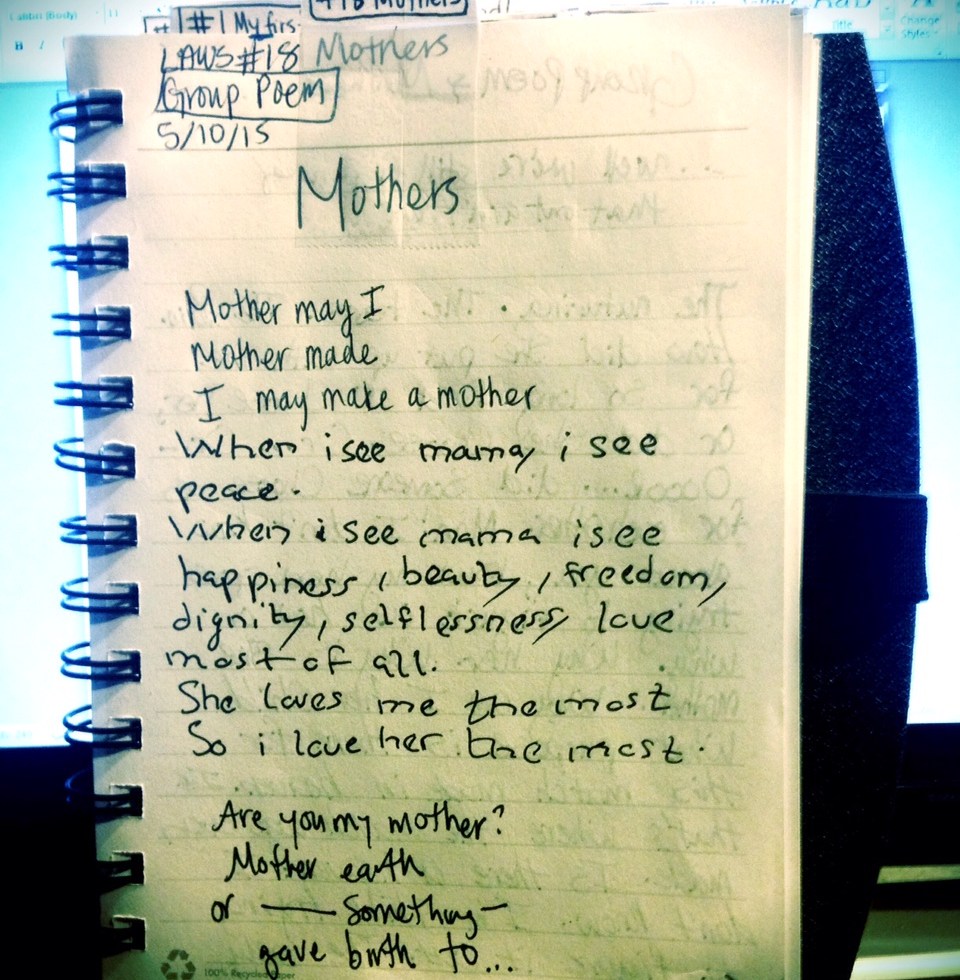 # 1 My firs
LAWS #18 Mothers
Group Poem
5/10/15
Mothers
Mother may I
Mother made
I may make a mother
When i see mama, i see
peace.
When i see mama i see
happiness, beauty, freedom,
dignity, selflessness, love
most of all.
She loves me the most
So i love her the most.
Are you my mother?
Mother earth
or —— Something —
gave birth to...
100% Recycled Paper